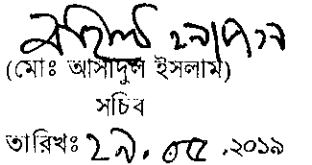 (মোঃ আসাদুল ইসলাম)
সচিব
তারিখঃ ২৯.০৫.২০১৯